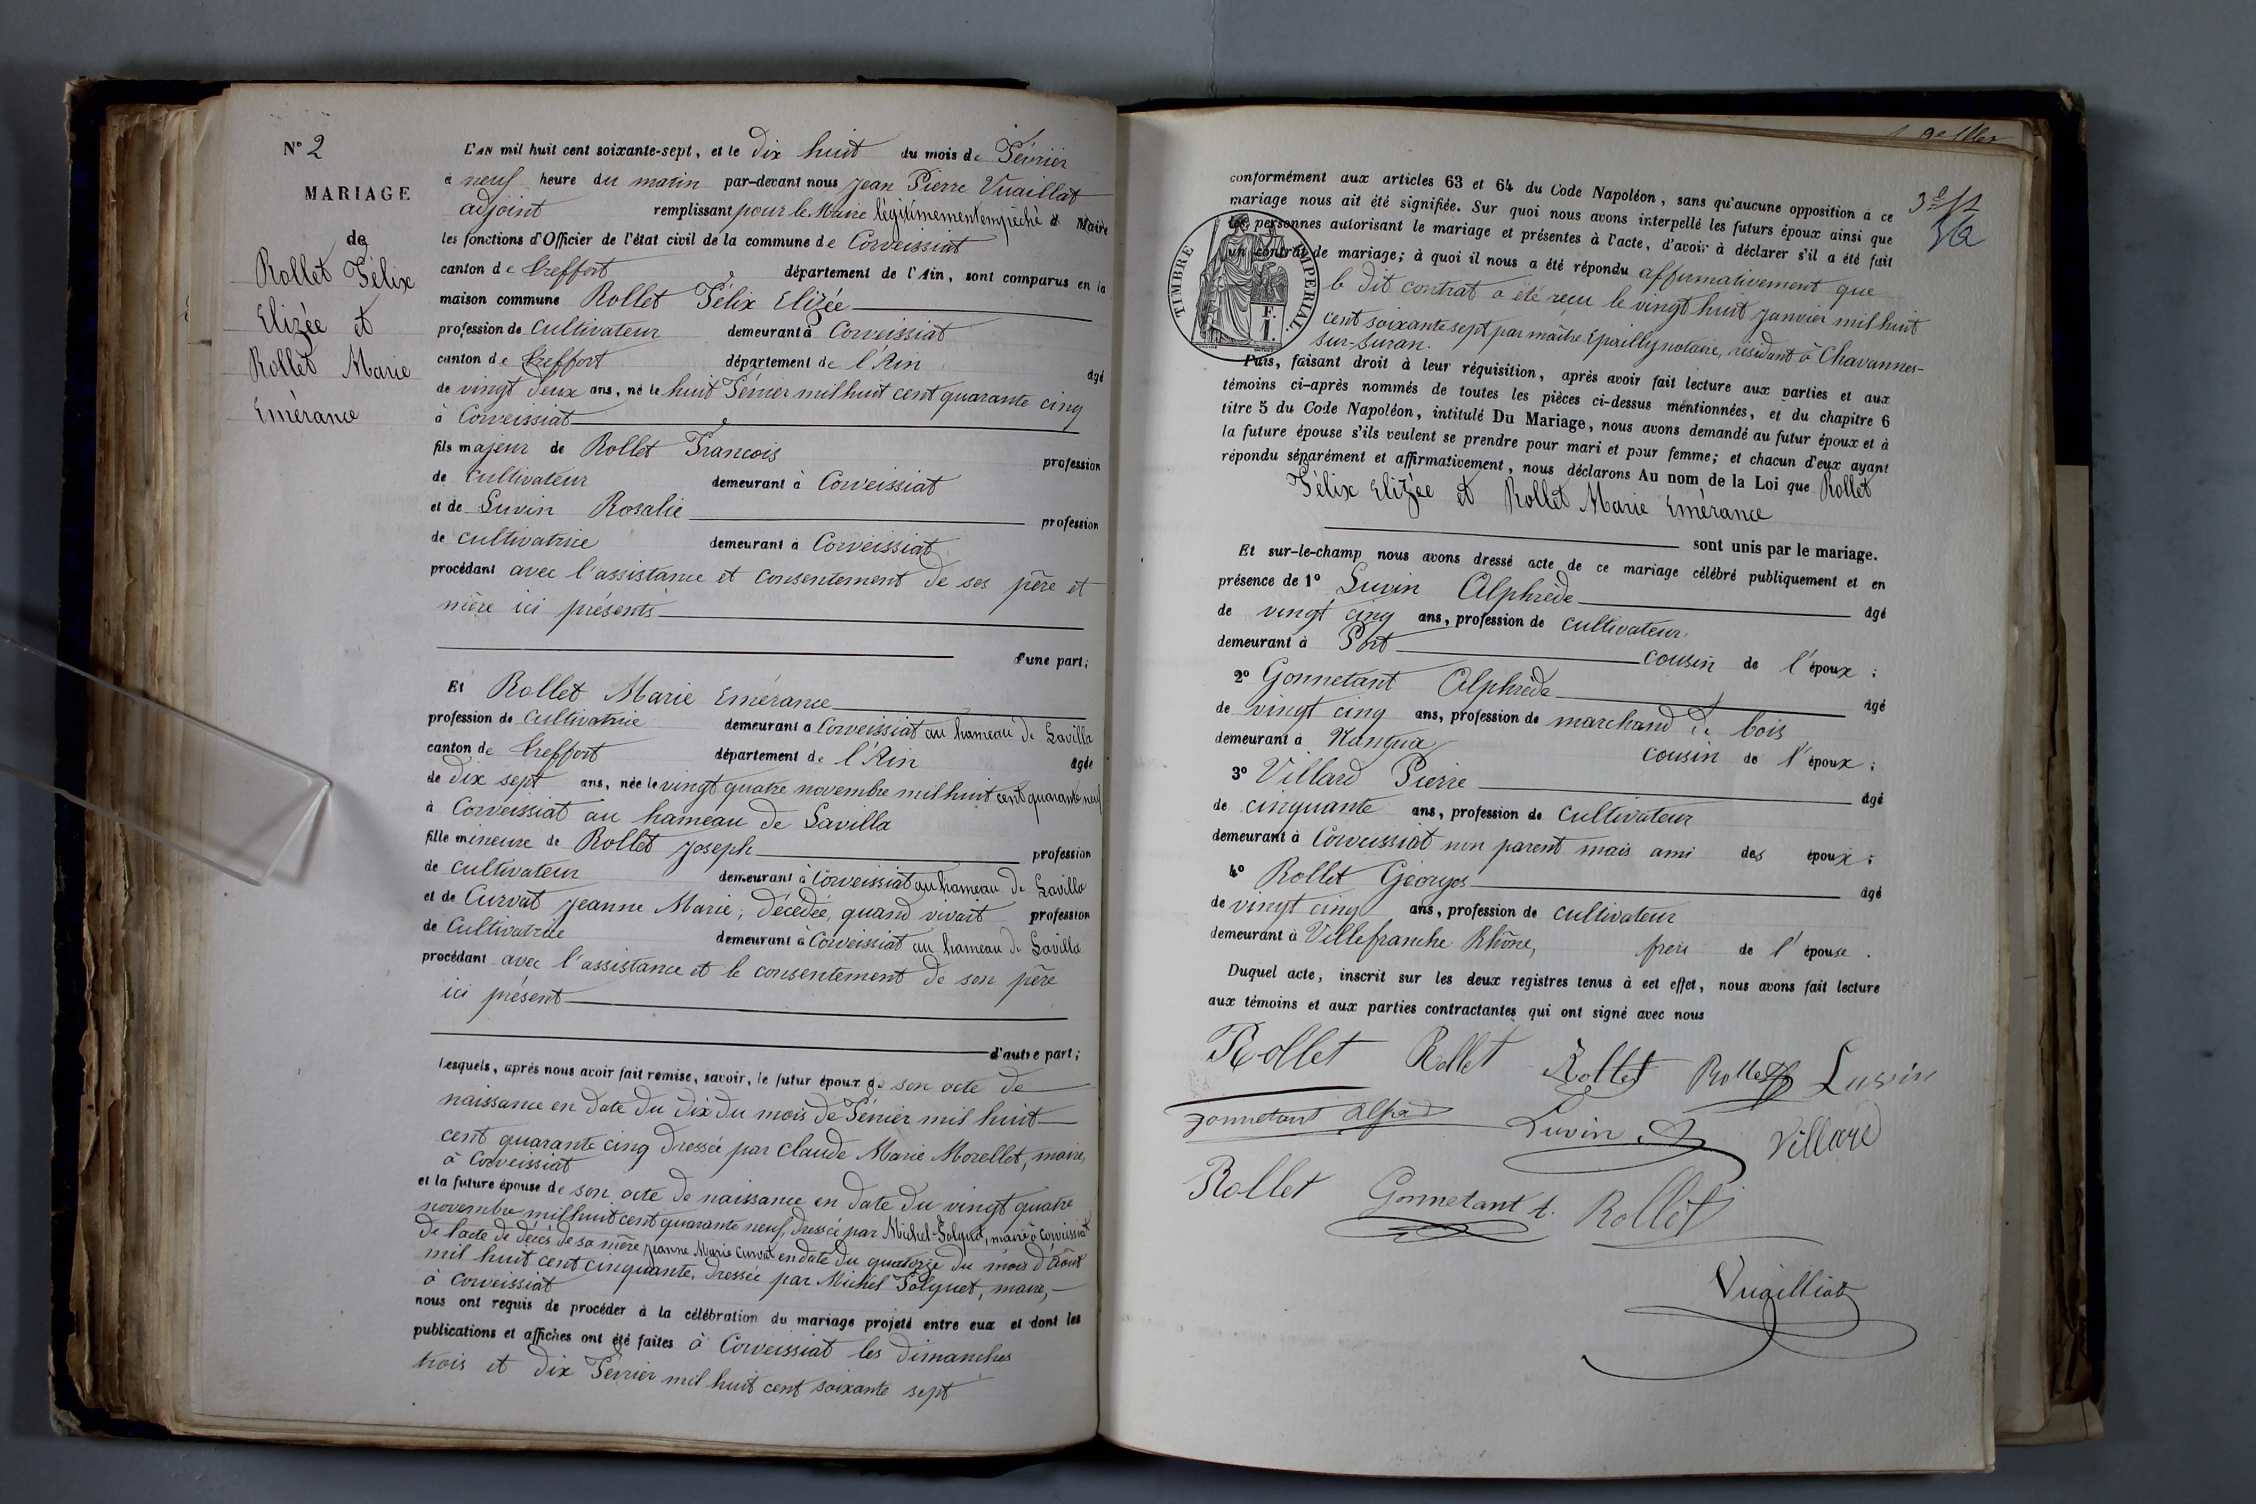 N° 2
MARIAGE
de
Rollet Félix
Elizée et
Rollet Marie
Emérance
L'AN mil huit cent soixante-sept, et le dix huit du mois de Février
à neuf heure du matin par-devant nous Jean Pierre Vuaillat
adjoint remplissant pour le Maire légitimement empêché d Maire
les fonctions d'Officier de l'état civil de la commune de Corveissiat
canton de Treffort département de l'Ain, sont comparus en la
maison commune Rollet Félix Elizée
profession de Cultivateur demeurant à Corveissiat
canton de Treffort département de l'Ain âgé
de vingt deux ans, né le huit Février mil huit cent quarante cinq
à Corveissiat
fils majeur de Rollet Francois profession
de cultivateur demeurant à Corveissiat
et de Luvin Rosalie profession
de cultivatrice demeurant à Corveissiat
procédant avec l'assistance et consentement de ses père et
mère ici présents
d'une part;
Et Rollet Marie Emérance
profession de cultivatrice demeurant à Corveissiat au hameau de Lavilla
canton de Treffort département de l'Ain âgée
de dix sept ans, née le vingt quatre novembre mil huit cent quarante neuf
à Corveissiat au hameau de Lavilla
fille mineure de Rollet Joseph profession
de cultivateur demeurant à Corveissiat au hameau de Lavilla
et de Curvat Jeanne Marie, décédée, quand vivait profession
de Cultivatrice demeurant à Corveissiat au hameau de Lavilla
procédant avec l'assistance et le consentement de son père
ici présent
d'autre part;
Lesquels, après nous avoir fait remise, savoir, le futur époux de son acte de
naissance en date du dix du mois de Février mil huit
cent quarante cinq dressée par Claude Marie Morellet, maire,
à Corveissiat
et la future épouse de son acte de naissance en date du vingt quatre
novembre mil huit cent quarante neuf, dressé par Michel Folquet, maire à Corveissiat
de l'acte de décès de sa mère Jeanne Marie Curvat en date du quatorze du mois d'Août
mil huit cent cinquante, dressée par Michel Folquet, maire,
à Corveissiat
nous ont requis de procéder à la célébration du mariage projeté entre eux et dont les
publications et affiches ont été faites à Corveissiat les dimanches
trois et dix Février mil huit cent soixante sept
conformément aux articles 63 et 64 du Code Napoléon, sans qu'aucune opposition à ce
mariage nous ait été signifiée. Sur quoi nous avons interpellé les futurs époux ainsi que
les personnes autorisant le mariage et présentes à l'acte, d'avoir à déclarer s'il a été fait
un contrat de mariage; à quoi il nous a été répondu affirmativement que
le dit contrat a été reçu le vingt huit janvier mil huit
cent soixante sept par maître Epailly notaire, résidant à Chavannes-
sur-Suran.
TIMBRE IMPERIAL.
F.
1.
Puis, faisant droit à leur réquisition, après avoir fait lecture aux parties et aux
témoins ci-après nommés de toutes les pièces ci-dessus mentionnées, et du chapitre 6
titre 5 du Code Napoléon, intitulé Du Mariage, nous avons demandé au futur époux et à
la future épouse s'ils veulent se prendre pour mari et pour femme; et chacun d'eux ayant
répondu séparément et affirmativement, nous déclarons Au nom de la Loi que Rollet
Félix Elizée et Rollet Marie Emérance
sont unis par le mariage.
Et sur-le-champ nous avons dressé acte de ce mariage célébré publiquement et en
présence de 1° Luvin Alphrède âgé
de vingt cinq ans, profession de cultivateur
demeurant à Port cousin de l'époux;
2° Gonnetant Alphrède âgé
de vingt cinq ans, profession de marchand de bois
demeurant à Nantua cousin de l'époux;
3° Villard Pierre âgé
de cinquante ans, profession de cultivateur
demeurant à Corveissiat non parent mais ami des époux;
4° Rollet Georges âgé
de vingt cinq ans, profession de cultivateur
demeurant à Villefranche Rhône, frère de l'épouse.
Duquel acte, inscrit sur les deux registres tenus à cet effet, nous avons fait lecture
aux témoins et aux parties contractantes qui ont signé avec nous
Rollet Rollet Rollet Rollet Luvin
Gonnetant Alfred Luvin Villard
Rollet Gonnetant A. Rollet
Vuailliat